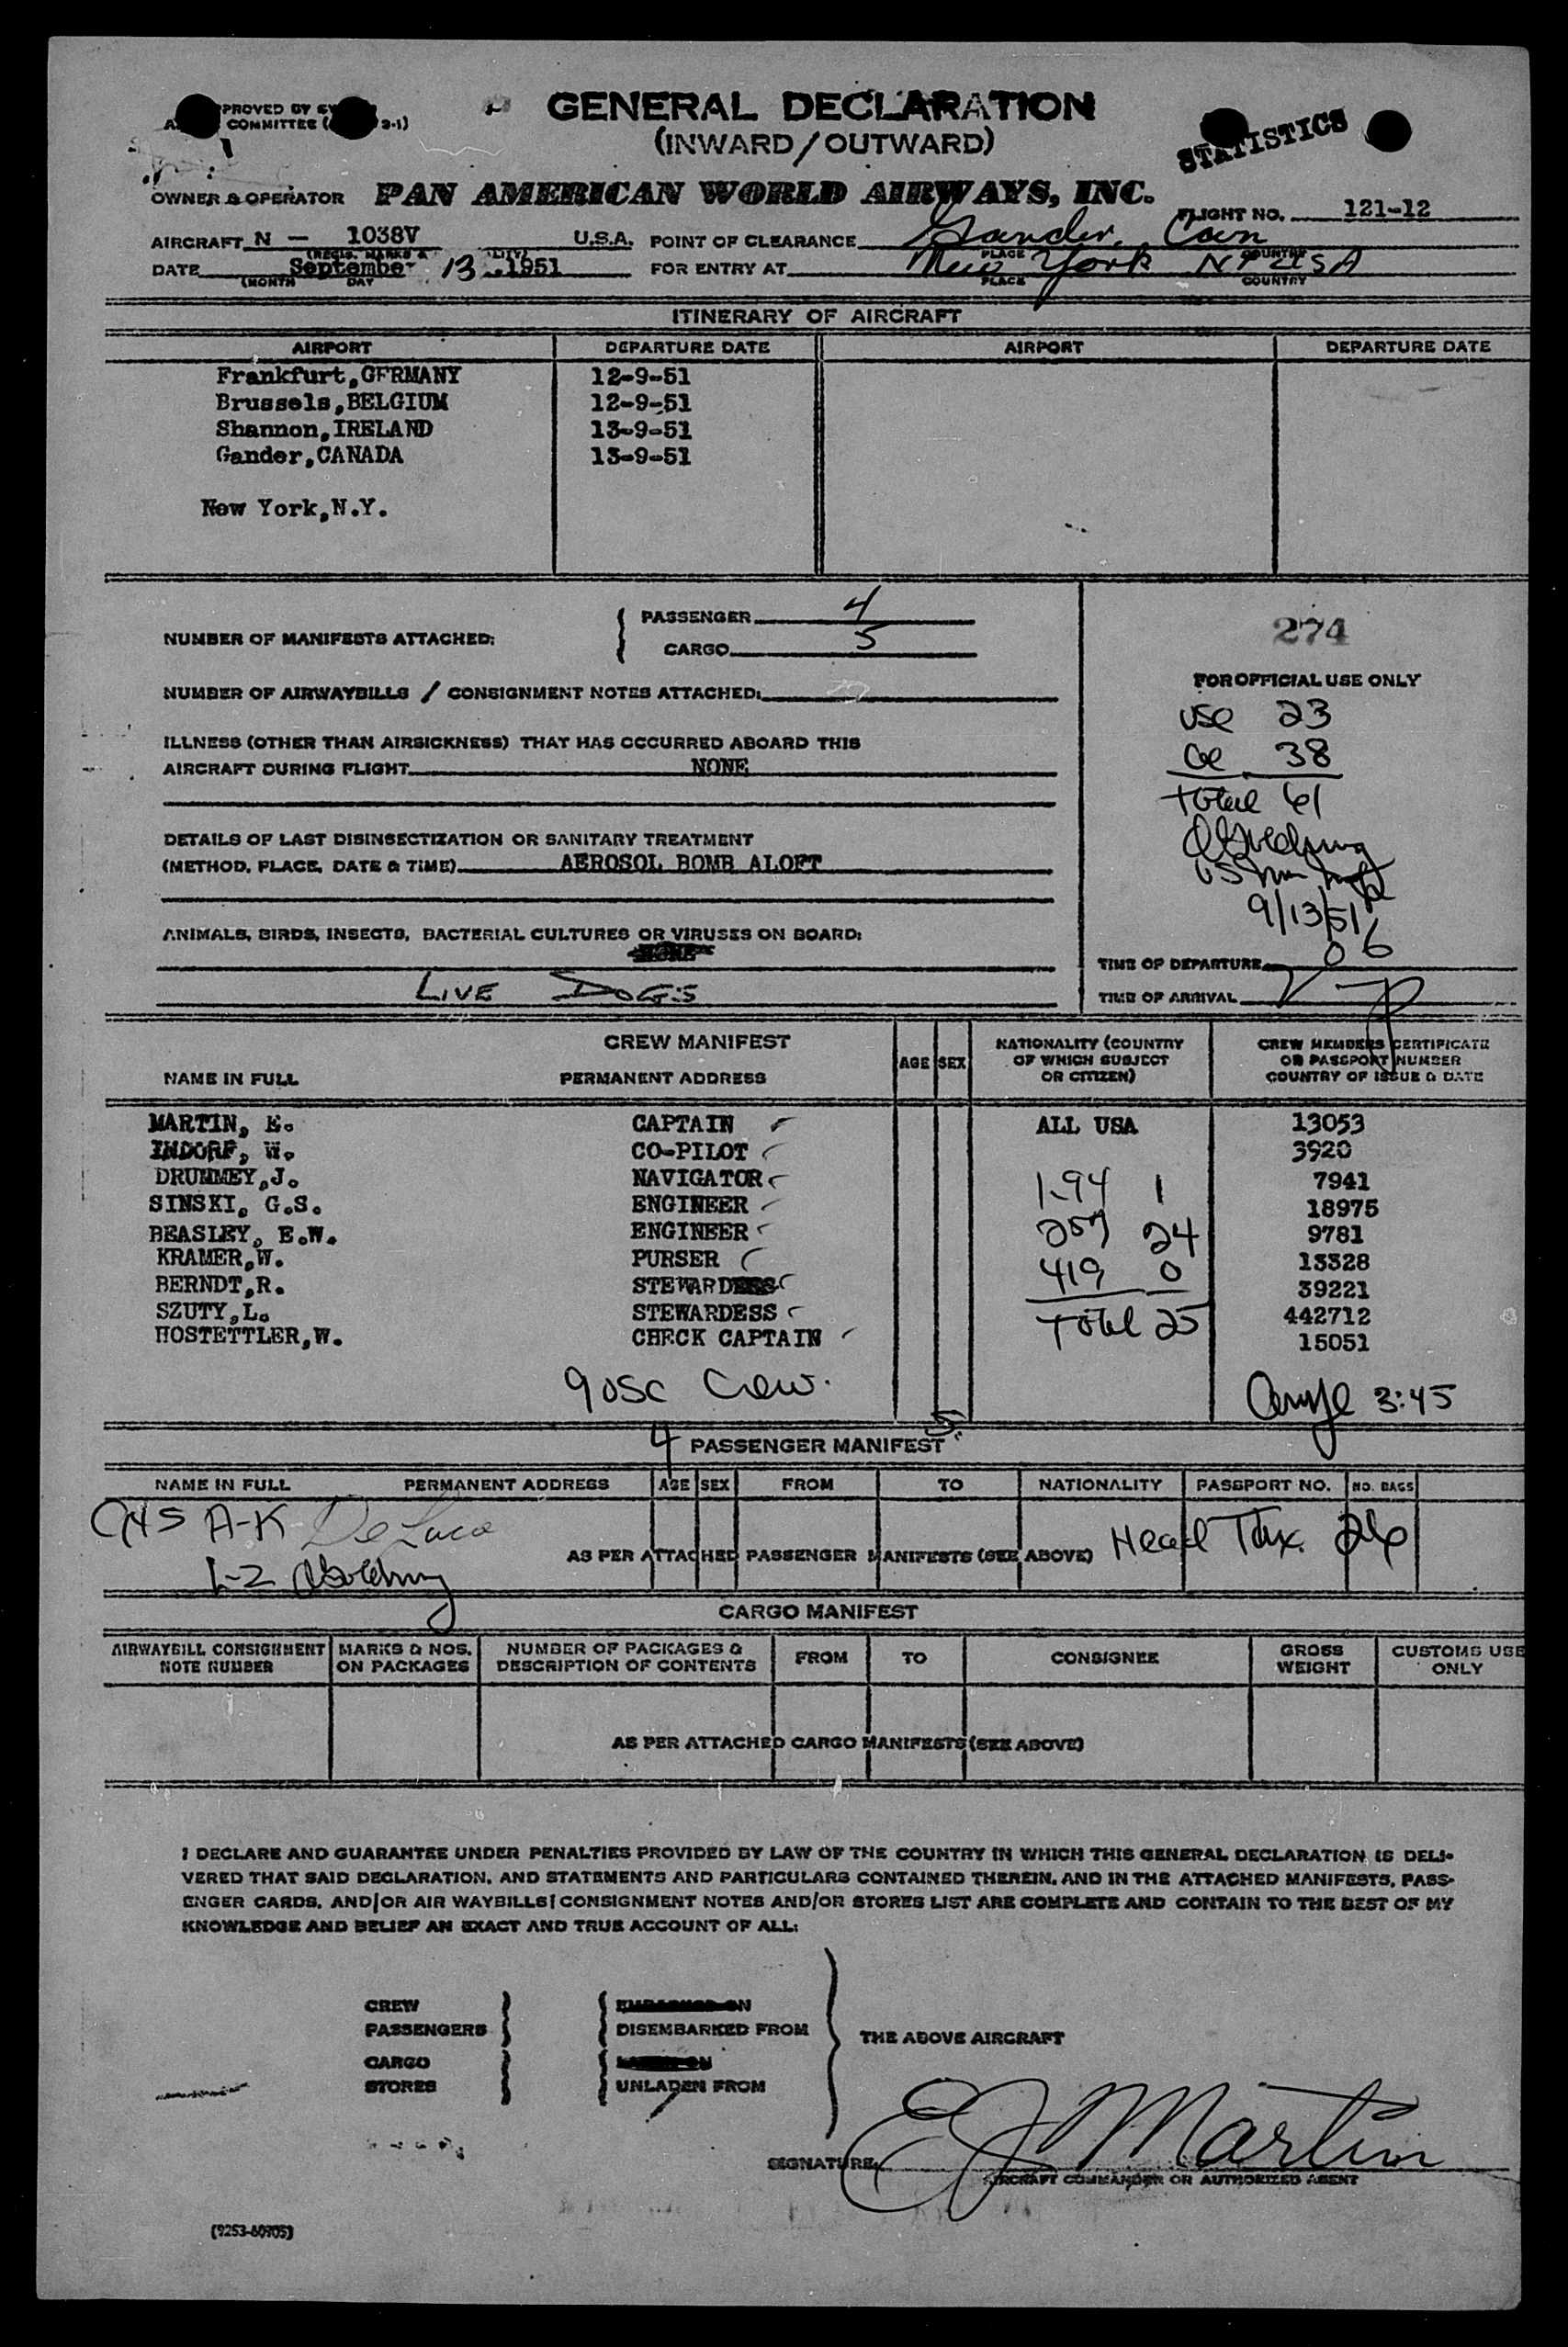 GENERAL DECLARATION
(INWARD/OUTWARD)
PROVED BY
COMMITTEE ( 9-1)
STATISTICS
OWNER & OPERATOR PAN AMERICAN WORLD AIRWAYS, INC.
FLIGHT NO. 121-12
AIRCRAFT N — 1038V U.S.A. POINT OF CLEARANCE Gander, Can
(REGIS. MARKS & PLACE COUNTRY
DATE September 13 1951 FOR ENTRY AT New York NY USA
(MONTH DAY PLACE COUNTRY
ITINERARY OF AIRCRAFT
AIRPORT DEPARTURE DATE AIRPORT DEPARTURE DATE
Frankfurt,GERMANY 12-9-51
Brussels,BELGIUM 12-9-51
Shannon,IRELAND 13-9-51
Gander,CANADA 13-9-51
New York,N.Y.
NUMBER OF MANIFESTS ATTACHED:
PASSENGER 4
CARGO 5
NUMBER OF AIRWAYBILLS / CONSIGNMENT NOTES ATTACHED:
ILLNESS (OTHER THAN AIRSICKNESS) THAT HAS OCCURRED ABOARD THIS
AIRCRAFT DURING FLIGHT NONE
DETAILS OF LAST DISINSECTIZATION OR SANITARY TREATMENT
(METHOD, PLACE, DATE & TIME) AEROSOL BOMB ALOFT
ANIMALS, BIRDS, INSECTS, BACTERIAL CULTURES OR VIRUSES ON BOARD:
NONE
LIVE DOGS
274
FOR OFFICIAL USE ONLY
USC 23
38
Total 61
9/13/51
TIME OF DEPARTURE
TIME OF ARRIVAL
CREW MANIFEST
NAME IN FULL PERMANENT ADDRESS AGE SEX NATIONALITY (COUNTRY OF WHICH SUBJECT OR CITIZEN) CREW MEMBERS CERTIFICATE OR PASSPORT NUMBER COUNTRY OF ISSUE & DATE
MARTIN, E. CAPTAIN ALL USA 13053
INDORF, W. CO-PILOT 3920
DRUMMEY,J. NAVIGATOR 1-94 1 7941
SINSKI, G.S. ENGINEER 18975
BEASLEY, E.W. ENGINEER 257 24 9781
KRAMER,W. PURSER 419 0 13328
BERNDT,R. STEWARDESS 39221
SZUTY,L. STEWARDESS Total 25 442712
HOSTETTLER,W. CHECK CAPTAIN 15051
9 USC Crew.
3:45
4 PASSENGER MANIFEST 5
NAME IN FULL PERMANENT ADDRESS AGE SEX FROM TO NATIONALITY PASSPORT NO. NO. BAGS
A-K De Luca
L-Z
AS PER ATTACHED PASSENGER MANIFESTS (SEE ABOVE) Head Tax 26
CARGO MANIFEST
AIRWAYBILL CONSIGNMENT NOTE NUMBER MARKS & NOS. ON PACKAGES NUMBER OF PACKAGES & DESCRIPTION OF CONTENTS FROM TO CONSIGNEE GROSS WEIGHT CUSTOMS USE ONLY
AS PER ATTACHED CARGO MANIFESTS (SEE ABOVE)
I DECLARE AND GUARANTEE UNDER PENALTIES PROVIDED BY LAW OF THE COUNTRY IN WHICH THIS GENERAL DECLARATION IS DELI-
VERED THAT SAID DECLARATION, AND STATEMENTS AND PARTICULARS CONTAINED THEREIN, AND IN THE ATTACHED MANIFESTS, PASS-
ENGER CARDS, AND/OR AIR WAYBILLS/CONSIGNMENT NOTES AND/OR STORES LIST ARE COMPLETE AND CONTAIN TO THE BEST OF MY
KNOWLEDGE AND BELIEF AN EXACT AND TRUE ACCOUNT OF ALL:
CREW
PASSENGERS DISEMBARKED FROM
THE ABOVE AIRCRAFT
CARGO
STORES UNLADEN FROM
SIGNATURE EJ Martin
AIRCRAFT COMMANDER OR AUTHORIZED AGENT
(9253-60905)